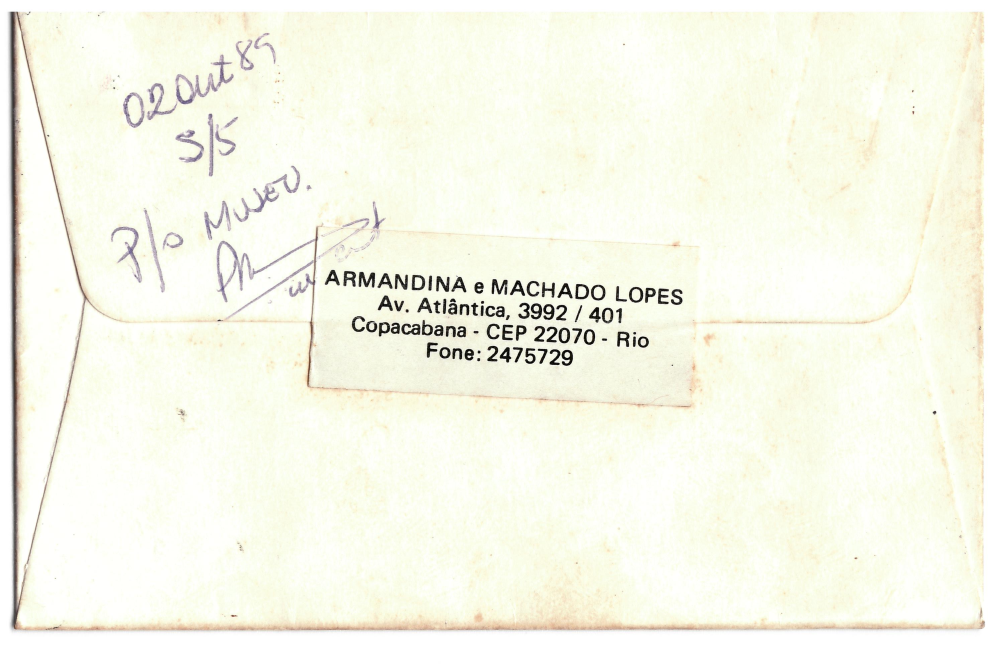 02 Out 89
S/5
P/o MUSEU.
ARMANDINA e MACHADO LOPES
Av. Atlântica, 3992 / 401
Copacabana - CEP 22070 - Rio
Fone: 2475729